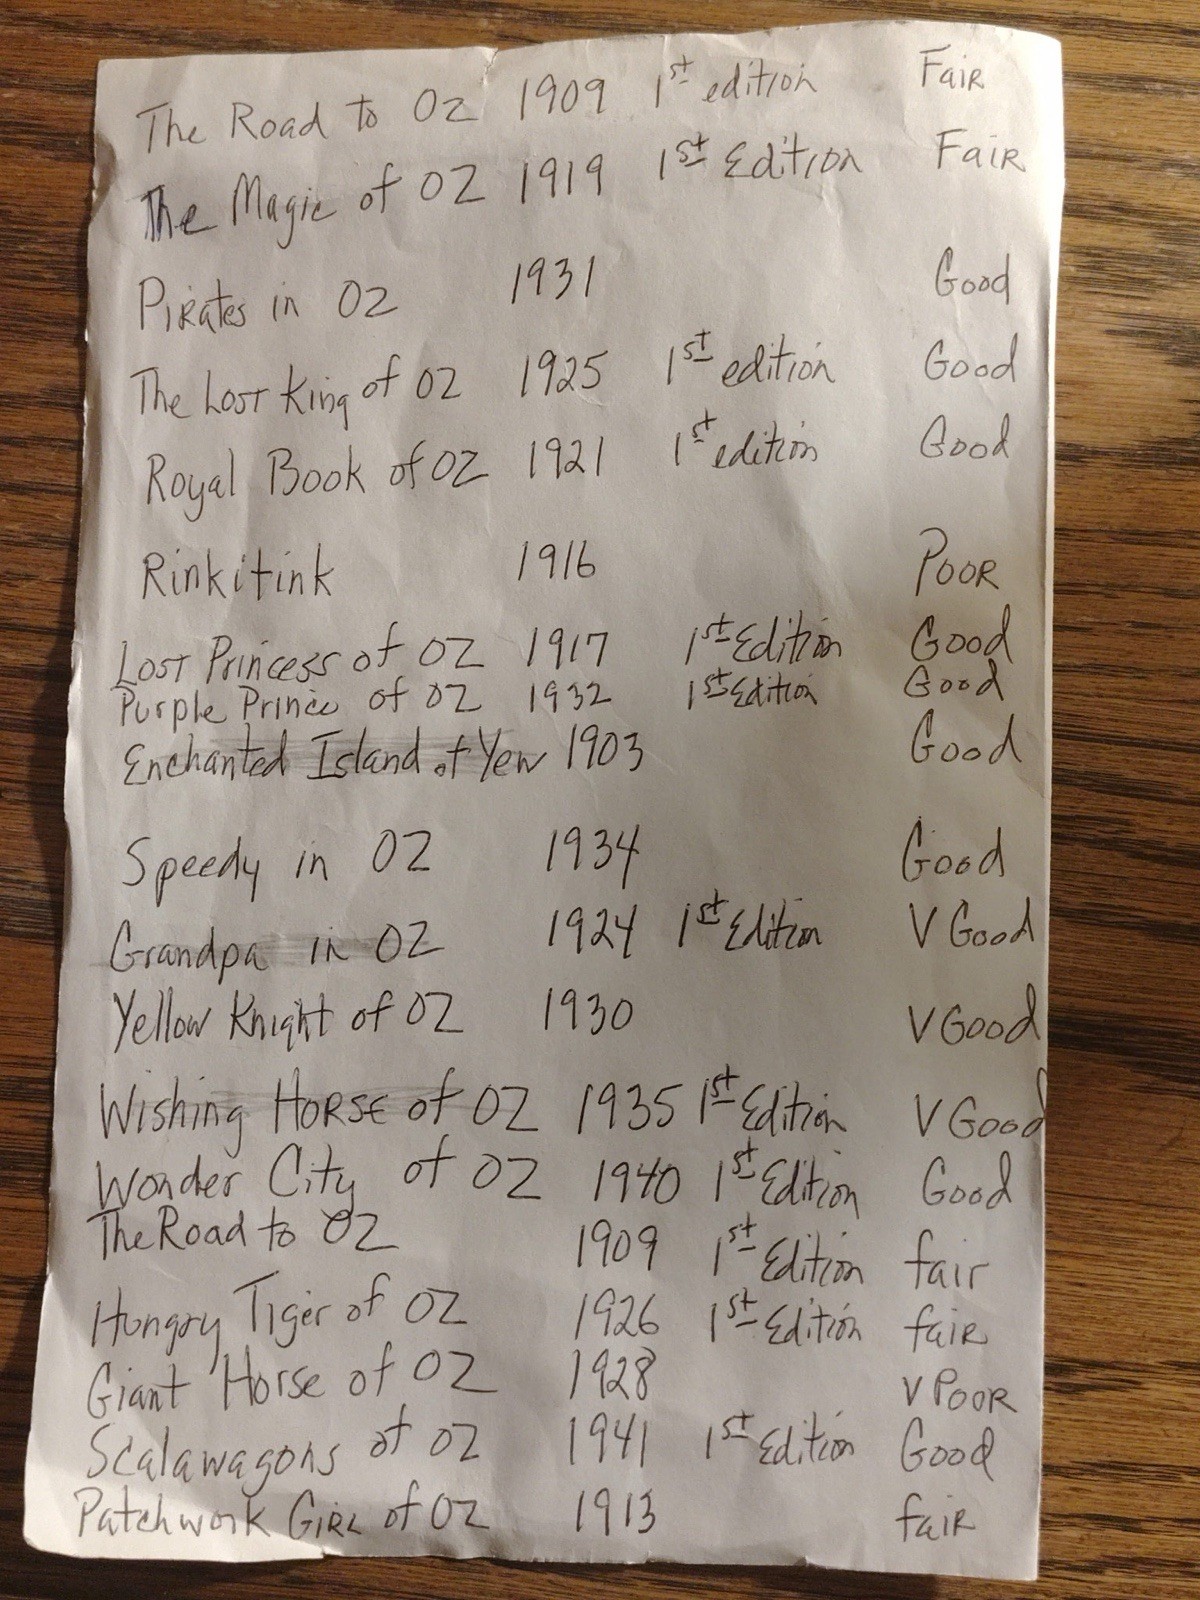 The Road to OZ 1909 1st edition Fair
The Magic of OZ 1919 1st Edition Fair
Pirates in OZ 1931 Good
The Lost King of OZ 1925 1st edition Good
Royal Book of OZ 1921 1st edition Good
Rinkitink 1916 Poor
Lost Princess of OZ 1917 1st Edition Good
Purple Prince of OZ 1932 1st Edition Good
Enchanted Island of Yew 1903 Good
Speedy in OZ 1934 Good
Grandpa in OZ 1924 1st Edition V Good
Yellow Knight of OZ 1930 V Good
Wishing Horse of OZ 1935 1st Edition V Good
Wonder City of OZ 1940 1st Edition Good
The Road to OZ 1909 1st Edition fair
Hungry Tiger of OZ 1926 1st Edition fair
Giant Horse of OZ 1928 V Poor
Scalawagons of OZ 1941 1st Edition Good
Patchwork Girl of OZ 1913 fair